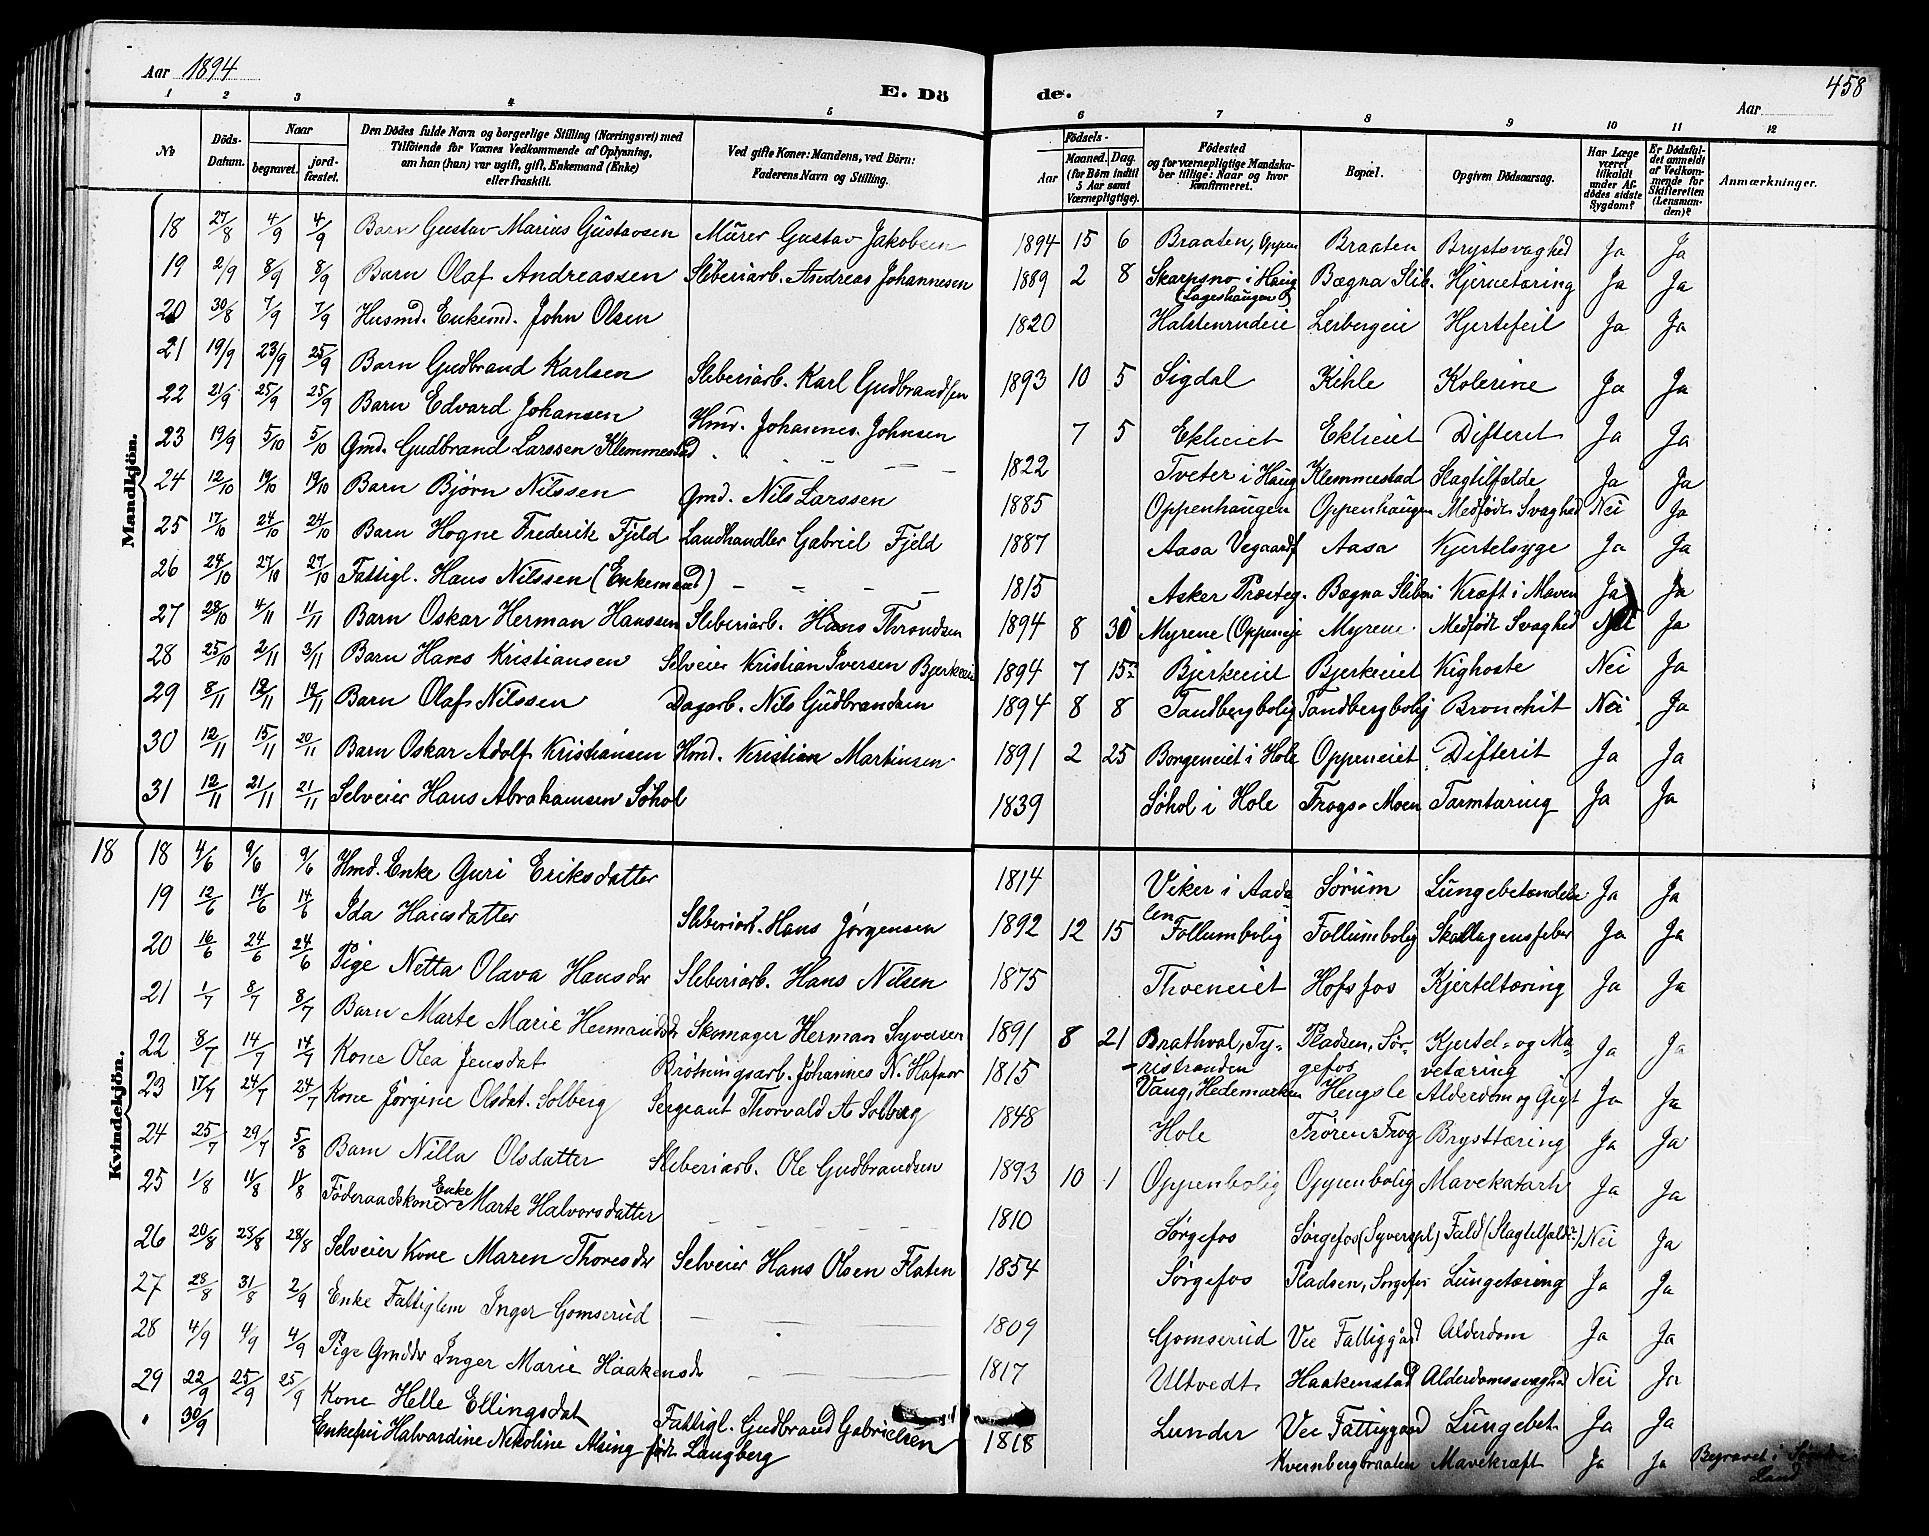 Aar 1894
E. Dö de.
Aar
458
1 2 3 4 5 6 7 8 9 10 11 12
No
Döds-Datum.
Naar
begravet.
jord-fæstet.
Den Dödes fulde Navn og borgerlige Stilling (Næringsvei) med
Tilföiende for Voxnes Vedkommende af Oplysning,
om han (hun) var ugift, gift, Enkemand (Enke)
eller fraskilt.
Ved gifte Koner: Mandens, ved Börn:
Faderens Navn og Stilling.
Födsels-
Aar
Maaned. Dag.
(for Börn indtil
5 Aar samt
Værnepligtige).
Födested
og for værnepligtige Mandska-
ber tillige: Naar og hvor
konfirmeret.
Bopæl.
Opgiven Dödsaarsag.
Har Læge
været
tilkaldt
under Af-
dödes sidste
Sygdom?
Er Dödsfal-
det anmeldt
af Vedkom-
mende for
Skifteretten
(Lensman-
den)?
Anmærkninger.
Mandkjön.
18 27/8 4/9 4/9 Barn Gustav Marius Gustavsen Murer Gustav Jakobsen 1894 15 6 Braaten, Oppen Braaten Brystsvaghed Ja Ja
19 2/9 8/9 8/9 Barn Olaf Andreassen Sliberiarb. Andreas Johannesen 1889 2 8 Skarpsno i Haug Bægna Slib. Hjernetæring Ja Ja
(Lageshaugen)
20 30/8 7/9 7/9 Husmd. Enkemd. John Olsen 1820 Halstenrudeie Lerbergeie Hjertefeil Ja Ja
21 19/9 23/9 25/9 Barn Gudbrand Karlsen Sliberiarb. Karl Gudbrandsen 1893 10 5 Sigdal Kihle Kolerine Ja Ja
22 21/9 25/9 25/9 Barn Edvard Johansen Hmd. Johannes Johnsen 7 5 Ekheiet Ekheiet Difterit Ja Ja
23 19/9 5/10 5/10 Gmd. Gudbrand Larssen Klemmestad 1822 Tveter i Haug Klemmestad Slagtilfælde Ja Ja
24 12/10 19/10 19/10 Barn Bjørn Nilssen Gmd. Nils Larssen 1885 Oppenhaugen Oppenhaugen Medfødt Svaghed Nei Ja
25 17/10 24/10 24/10 Barn Hogne Frederik Fjeld Landhandler Gabriel Fjeld 1887 Aasa Vegaardf Aasa Kjertelsyge Ja Ja
26 24/10 27/10 27/10 Fattigl. Hans Nilssen (Enkemand) 1815 Asker Præsteg. Bægna Sliberi Kræft i Maven Ja Ja
27 28/10 4/11 11/11 Barn Oskar Herman Hanssen Sliberiarb. Hans Throndsen 1894 8 30 Myrene (Oppeneje Myrene Medfødt Svaghed Nei Ja
28 25/10 2/11 3/11 Barn Hans Kristiansen Selveier Kristian Iversen Bjerkeeie 1894 7 15 Bjerkeeiet Bjerkeeiet Kighoste Nei Ja
29 8/11 12/11 12/11 Barn Olaf Nilssen Dagarb. Nils Gudbrandsen 1894 8 8 Tandbergbolig Tandbergbolig Bronchit Nei Ja
30 12/11 15/11 20/11 Barn Oskar Adolf Kristiansen Hmd. Kristian Martinsen 1891 2 25 Borgeneiet i Hole Oppeneiet Difterit Ja Ja
31 12/11 21/11 21/11 Selveier Hans Abrahamsen Søhol 1839 Søhol i Hole Frogs-Moen Tarmtæring Ja Ja
Kvindekjön.
18 18 4/6 9/6 9/6 Hmd. Enke Guri Eriksdatter 1814 Viker i Aada- Sørum Lungebetændelse Ja Ja
len
19 12/6 14/6 14/6 Ida Hansdatter Sliberiarb. Hans Jørgensen 1892 12 15 Follumbolig Follumbolig Skarlagensfeber Ja Ja
20 16/6 24/6 24/6 Pige Netta Olava Hansdr Sliberiarb. Hans Nilsen 1875 Thoeneiet Hofsfos Kjerteltæring Ja Ja
21 1/7 8/7 8/7 Barn Marte Marie Hermansdr Skomager Herman Syversen 1891 8 21 Brathval, Ty- Pladsen, Sør- Kjertel- og Ma- Ja Ja
ristranden gefos vetæring
22 8/7 14/7 14/7 Kone Olea Jensdat Brøtningsarb. Johannes N. Hafnor 1815 Vang, Hedemarken Hengsle Alderdom og Gigt Ja Ja
23 17/7 24/7 24/7 Kone Jørgine Olsdat. Solberg Sergeant Thorvald A. Solberg 1848 Hole Frøren Frog Brysttæring Ja Ja
24 25/7 29/7 5/8 Barn Nilla Olsdatter Sliberiarb. Ole Gudbrandsen 1893 10 1 Oppenbolig Oppenbolig Mavekatarh Ja Ja
25 1/8 11/8 11/8 Føderaadskone Enke Marte Halvorsdatter 1810 Sørgefos Sørgefos (Syverspl) Fald (Slagtilfælde) Nei Ja
26 20/8 28/8 28/8 Selveier Kone Maren Thoresdr Selveier Hans Olsen Flaten 1854 Sørgefos Pladsen, Sørgefos Lungetæring Ja Ja
27 28/8 31/8 2/9 Enke Fattiglem Inger Gomserud 1809 Gomserud Vee Fattiggård Alderdom Ja Ja
28 4/9 4/9 4/9 Pige Gmddr Inger Marie Haakensdr 1817 Ultvedt Haakenstad Alderdomssvaghed Nei Ja
29 22/9 25/9 25/9 Kone Helle Ellingsdat Fattigl. Gudbrand Gabrielsen 1818 Lunder Vee Fattiggaard Lungebet. Ja Ja
30/9 Enkefru Halvardine Nikoline Alsing født Langberg Kvernbergbraaten Mavekræft Ja Ja Begravet i Søndre
Land